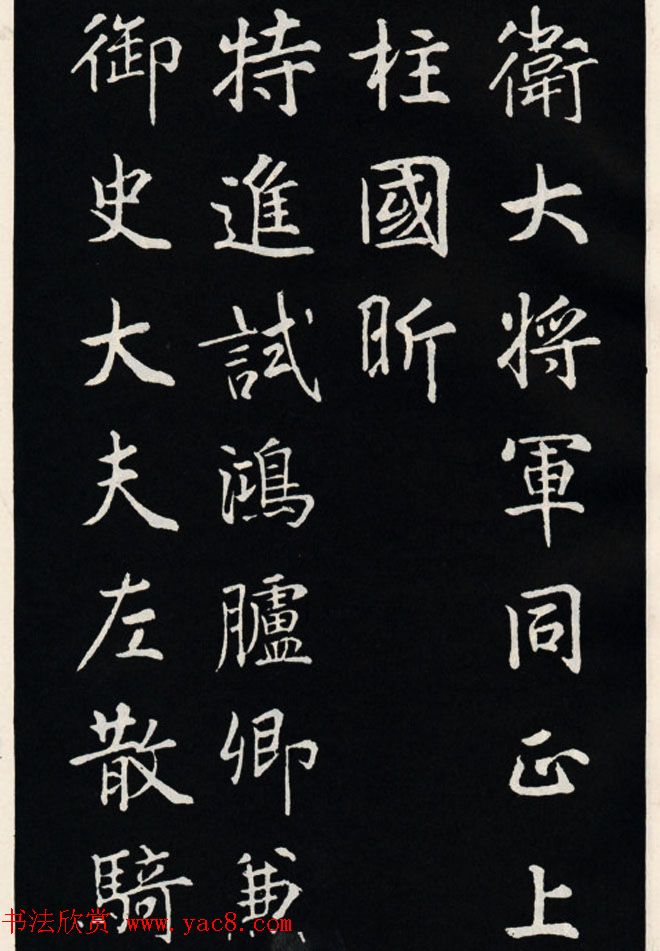 衛大將軍同正上
柱國昕
特進試鴻臚卿兼
御史大夫左散騎
书法欣赏 www.yac8.com